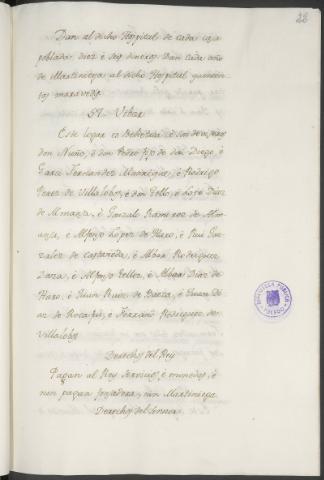 28
Dan al dicho Hospital de cada casa
poblada diez è seys dineros. Dan cada año
de Martiniega al dicho Hospital quinien
tos maravedis.
51. Vibar
Este logar es behetria è son devisseros
don Nuño, è don Pedro fijo de don Diego, è
Garci Fernandez Manrrique, è Rodrigo
Perez de Villalobos, è don Tello, è Lope Diaz
de Almanza, è Gonzalo Ramirez de Al-
manza, è Alfonso Lopez de Haro, è Rui Gon-
zalez de Castañeda, è Albar Rodriguez
Daza, è Alfonso Tellez, è Albar Diaz de
Haro, è Juan Ruiz de Baeza, è Juan Di-
az de Rocafui, è Ferrand Rodriguez de
Villalobos
Derechos del Rey
Pagan al Rey servicios, è monedas, è
non pagan fonsadera, nin Martiniega
Derechos del Sennor
BIBLIOTECA PUBLICA
TOLEDO